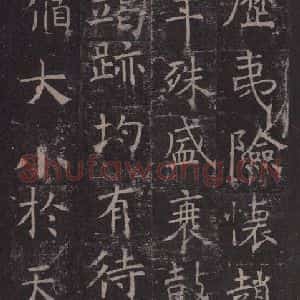 歷夷險懷趙
殊盛衰鼓
竭跡均有待
循大小於天
Shufawang.CN